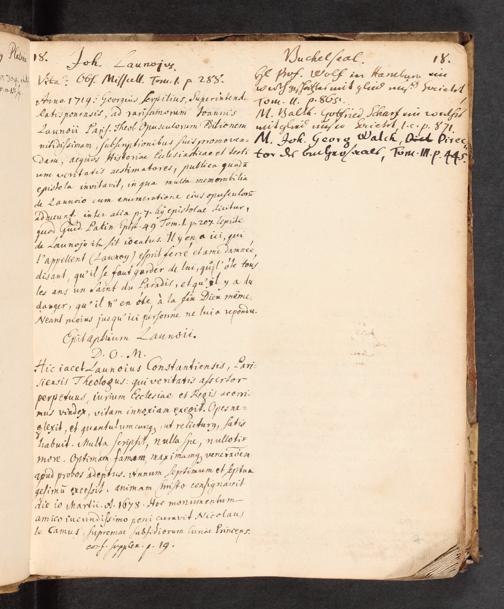 18.
Joh. Launojus.
Vita: Obs. Missell. Tom. I. p. 288.
Anno 1719: Georgius Serpilius, Superintend
Ratisponensis, ad rarissimorum Joannis
Launoii Paris. Theol. Opusculorum Editionem
nitidissimam, subscriptionibus suis promoven-
dam, aequos Historiae Ecclesiasticae et
veritatis aestimatores, publica quadam
epistola invitavit, in qua multa memorabilia
de Launoio cum enumeratione eius opusculorum
adducunt. inter alia p. 7. epistolae dicitur,
quod Guid. Patin Epist. 49 Tom. I. p. 207. lepide
de Launojo ita sit jocatus. Il y en a ici, qui
l'appellent (Launoy) esprit ferré et ame damnée,
disant, qu'il se faut garder de lui, qu'il ôte tous
les ans un Saint du Paradis, et qu'il y a du
danger, qu'il n'en ôte, à la fin Dieu même.
Neant moins jusqu'ici personne ne lui a repondu.
Epitaphium Launoii.
D. O. M.
Hic iacet Launoius Constantiensis, Pari-
siensis Theologus: qui veritatis assertor
perpetuus, iurium Ecclesiae et Regis acerri-
mus vindex, vitam innoxiam exegit. Opes ne-
glexit, et quantulumcunq, ut relicturus, satis
habuit. Multa scripsit, nulla spe, nullo ti-
more. Optimam famam, maximamq, venerationem
apud probos adeptus. Annum septimum et septua-
gesimum excessit. animam Christo consignavit
die 10 Martii. A. 1678. Hoc monumentum
amico iucundissimo poni curavit Nicolaus
le Camus, supremae subsidiorum curiae Princeps.
conf. supplem. p. 19.
Buchelseal. 18.
Prof. Wolf in Hamburg ein
Tom. II. p. 865.
M. Balth. Gottfried Scharf ein
mitglied l. c. p. 871.
M. Joh. Georg Walch, Direc-
tor des buchersaals, Tom. III. p. 445.